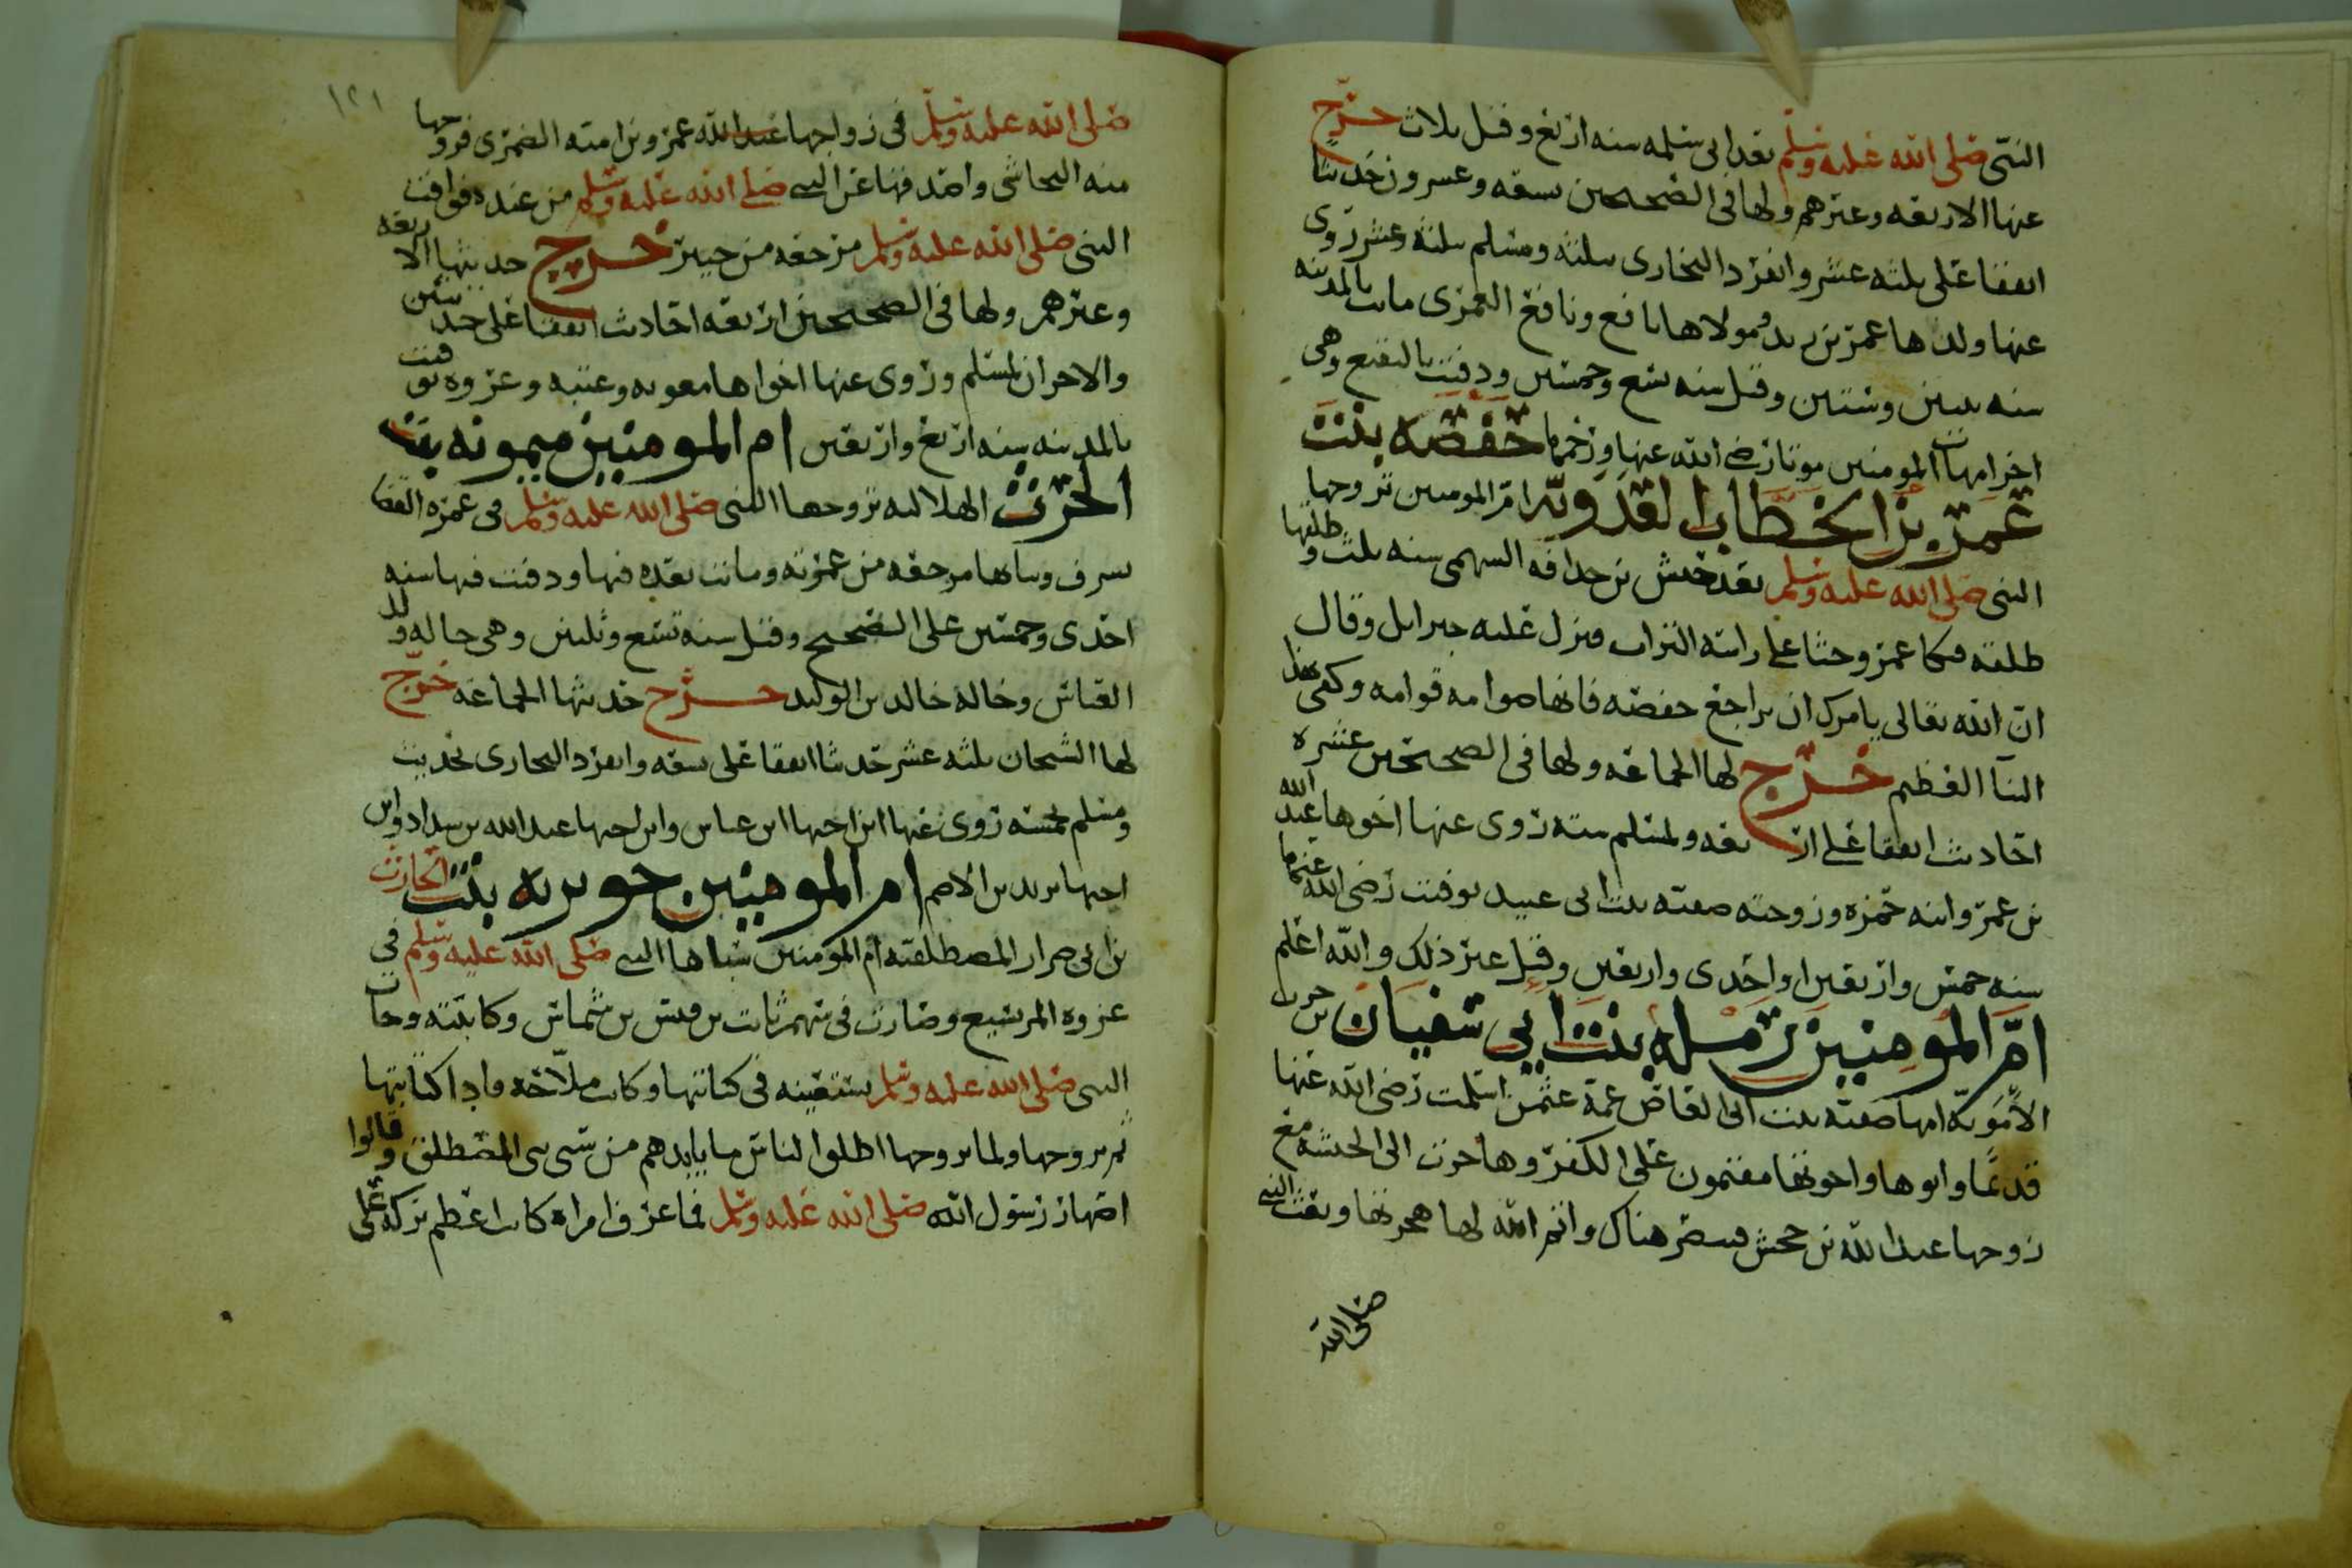 النبى صلى الله عليه وسلم بعد ابى سلمه سنه اربع وقيل ثلاث خرج
عنها الاربعه وغيرهم ولها فى الصحيحين تسعه وعشرون حديثا
اتفقا على ثلثه عشر وانفرد البخارى بثلثه ومسلم بثلثه عشر روى
عنها ولدها عمر بن يزيد ومولاها نافع ونافع العمرى ماتت بالمدينه
سنه ثنتين وستين وقيل سنه تسع وخمسين ودفنت بالبقيع وهى
اخر امهات المومنين موتا رضى الله عنها وزحمها حفصه بنت
عمر بن الخطاب العدويه ام المومنين تزوجها
النبى صلى الله عليه وسلم بعد خنيس بن حذافه السهمى سنه ثلث وطلقها
طلقه فبكا عمر وحثا على راسه التراب فنزل عليه جبرايل وقال
ان الله تعالى يامرك ان تراجع حفصه فانها صوامه قوامه وكفى بهذا
النبا العظيم خرج لها الجماعه ولها فى الصحيحين عشره
احاديث اتفقا على اربعه ولمسلم سته روى عنها اخوها عبد الله
بن عمر وابنه حمزه وزوجته صفيه بنت ابى عبيد توفيت رضى الله عنها
سنه خمس واربعين او احدى واربعين وقيل غير ذلك والله اعلم
ام المومنين رمله بنت ابي سفيان بن حرب
الامويه امها صفيه بنت ابى العاص عمة عثمن اسلمت رضى الله عنها
قديما وابوها واخوتها مقيمون على الكفر وهاجرت الى الحبشه مع
زوجها عبد الله بن جحش فتنصر هناك واتم الله لها هجرتها وبعث النبى
صلى الله
١٢١
صلى الله عليه وسلم فى زواجها عبد الله عمرو بن اميه الضمرى فزوجها
منه النجاشى واصدقها عن النبى صلى الله عليه وسلم من عنده فوافت
النبى صلى الله عليه وسلم مرجعه من خيبر خرج حديثها الاربعه
وغيرهم ولها فى الصحيحين اربعه احاديث اتفقا على حديثين
والاخران لمسلم وروى عنها اخواها معويه وعتبه وعروه توفيت
بالمدينه سنه اربع واربعين ام المومنين ميمونه بنت
الحرث الهلاليه تزوجها النبى صلى الله عليه وسلم فى عمره القضا
بسرف وبنا بها مرجعه من عمرته وماتت بعده فيها ودفنت فيها سنه
احدى وخمسين على الصحيح وقيل سنه تسع وثلثين وهى خاله ولد
العباس وخالة خالد بن الوليد خرج حديثها الجماعه خرج
لها الشيخان ثلثه عشر حديثا اتفقا على سبعه وانفرد البخارى بحديث
ومسلم بخمسه روى عنها ابن اختها ابن عباس وابن اختها عبد الله بن شداد وابن
اختها يزيد بن الاصم ام المومنين جويريه بنت الحارث
بن ابى ضرار المصطلقيه ام المومنين سباها النبى صلى الله عليه وسلم فى
غزوه المريسيع وصارت فى سهم ثابت بن قيس بن شماس وكاتبته وجات
النبى صلى الله عليه وسلم تستعينه فى كتابتها وكانت ملاحه فادا كتابتها
ثم تزوجها ولما تزوجها اطلقوا الناس ما بايديهم من سبى بنى المصطلق وقالوا
اصهار رسول الله صلى الله عليه وسلم فما اعرف امراه كانت اعظم بركه على